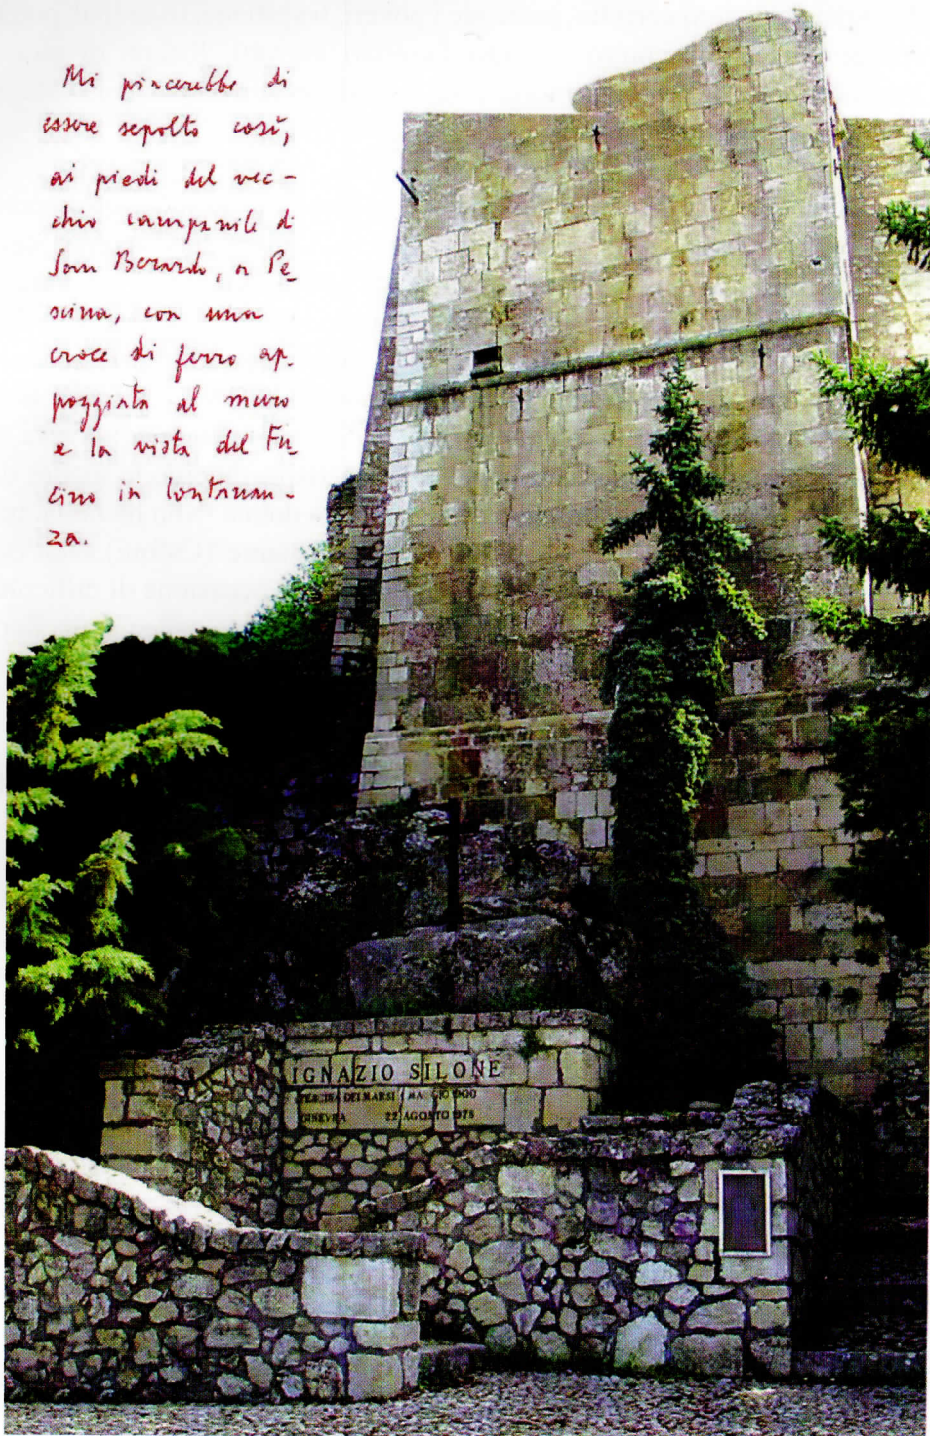 Mi piacerebbe di
essere sepolto così,
ai piedi del vec-
chio campanile di
San Berardo, a Pe
scina, con una
croce di ferro ap-
poggiata al muro
e la vista del Fu
cino in lontanan-
za.
IGNAZIO SILONE
PESCINA DEI MARSI 1 MAGGIO 1900
GINEVRA 22 AGOSTO 1978